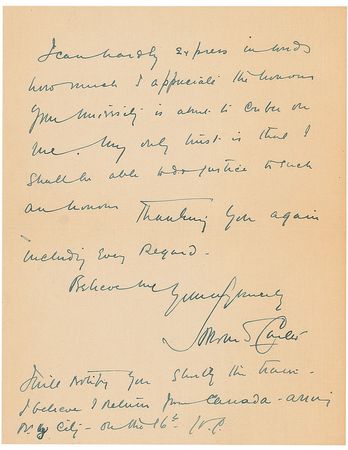 I can hardly express in words
how much I appreciate the honour
your University is about to confer on
me. My only trust is that I
shall be able to do justice to such
an honour Thanking you again
including every regard -
Believe me Yours Sincerely
Howard Carter
I will notify you shortly the train -
I believe I return from Canada - arriving
N. Y. City - on the 16th H.C.